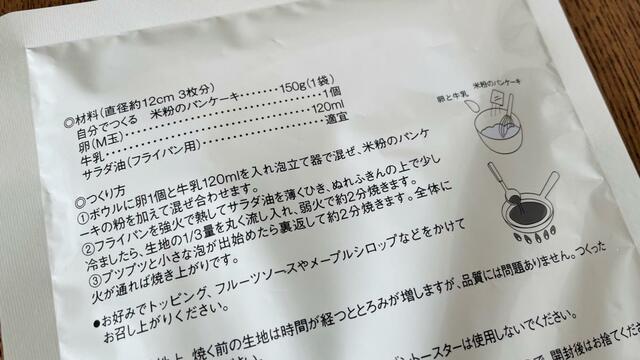 ◎材料(直径約12cm 3枚分)
自分でつくる 米粉のパンケーキ・・・・・・・150g(1袋)
卵(M玉)・・・・・・・・・・・・・・・・・・・・・・・・・・1個
牛乳・・・・・・・・・・・・・・・・・・・・・・・・・・・・120ml
サラダ油(フライパン用)・・・・・・・・・・・・・・・適宜
米粉のパンケーキ
卵と牛乳
◎つくり方
①ボウルに卵1個と牛乳120mlを入れ泡立て器で混ぜ、米粉のパンケ
ーキの粉を加えて混ぜ合わせます。
②フライパンを強火で熱してサラダ油を薄くひき、ぬれふきんの上で少し
冷ましたら、生地の1/3量を丸く流し入れ、弱火で約2分焼きます。
③プツプツと小さな泡が出始めたら裏返して約2分焼きます。全体に
火が通れば焼き上がりです。
●お好みでトッピング、フルーツソースやメープルシロップなどをかけて
お召し上がりください。
焼く前の生地は時間が経つととろみが増しますが、品質には問題ありません。つくった
トースターは使用しないでください。
開封後はお早